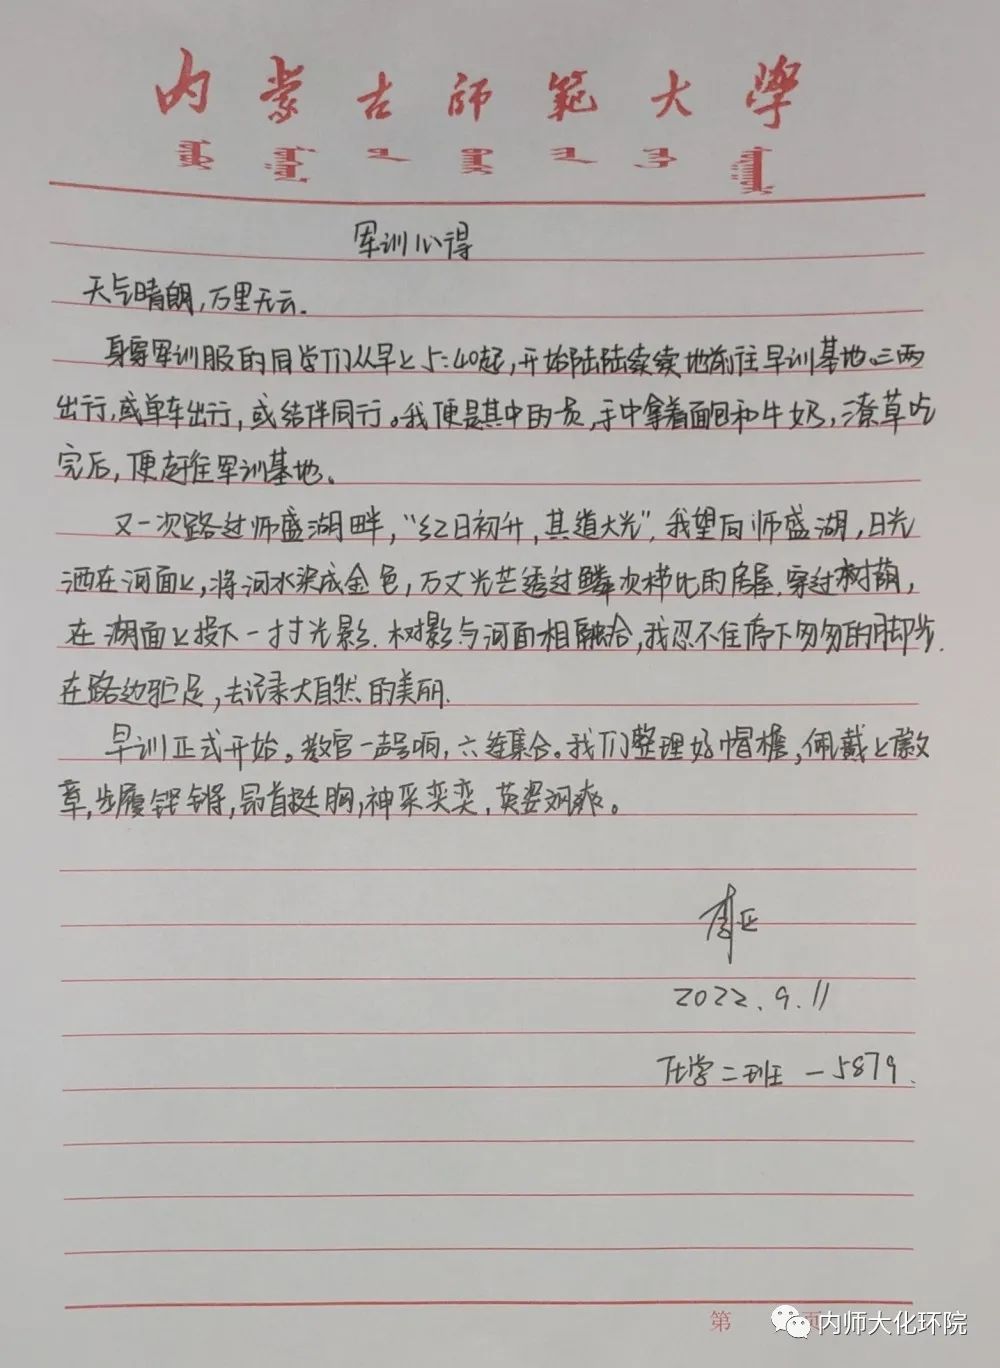 内蒙古师范大学
军训心得
天气晴朗，万里无云.
身穿军训服的同学们从早上5:40起，开始陆陆续续地前往早训基地.三两
出行，或单车出行，或结伴同行。我便是其中的一员，手中拿着面包和牛奶，潦草吃
完后，便赶往军训基地。
又一次路过师盛湖畔，“红日初升，其道大光”，我望向师盛湖，日光
洒在河面上，将河水染成金色，万丈光芒透过鳞次栉比的房屋.穿过树荫，
在湖面上投下一寸寸光影.树影与河面相融合，我忍不住停下匆匆的脚步.
在路边驻足，去记录大自然的美丽.
早训正式开始。教官一声号响，六连集合。我们整理好帽檐，佩戴上徽
章，步履铿锵，昂首挺胸，神采奕奕，英姿飒爽。
2022.9.11
化学二班 -5879.
第 页
内师大化环院